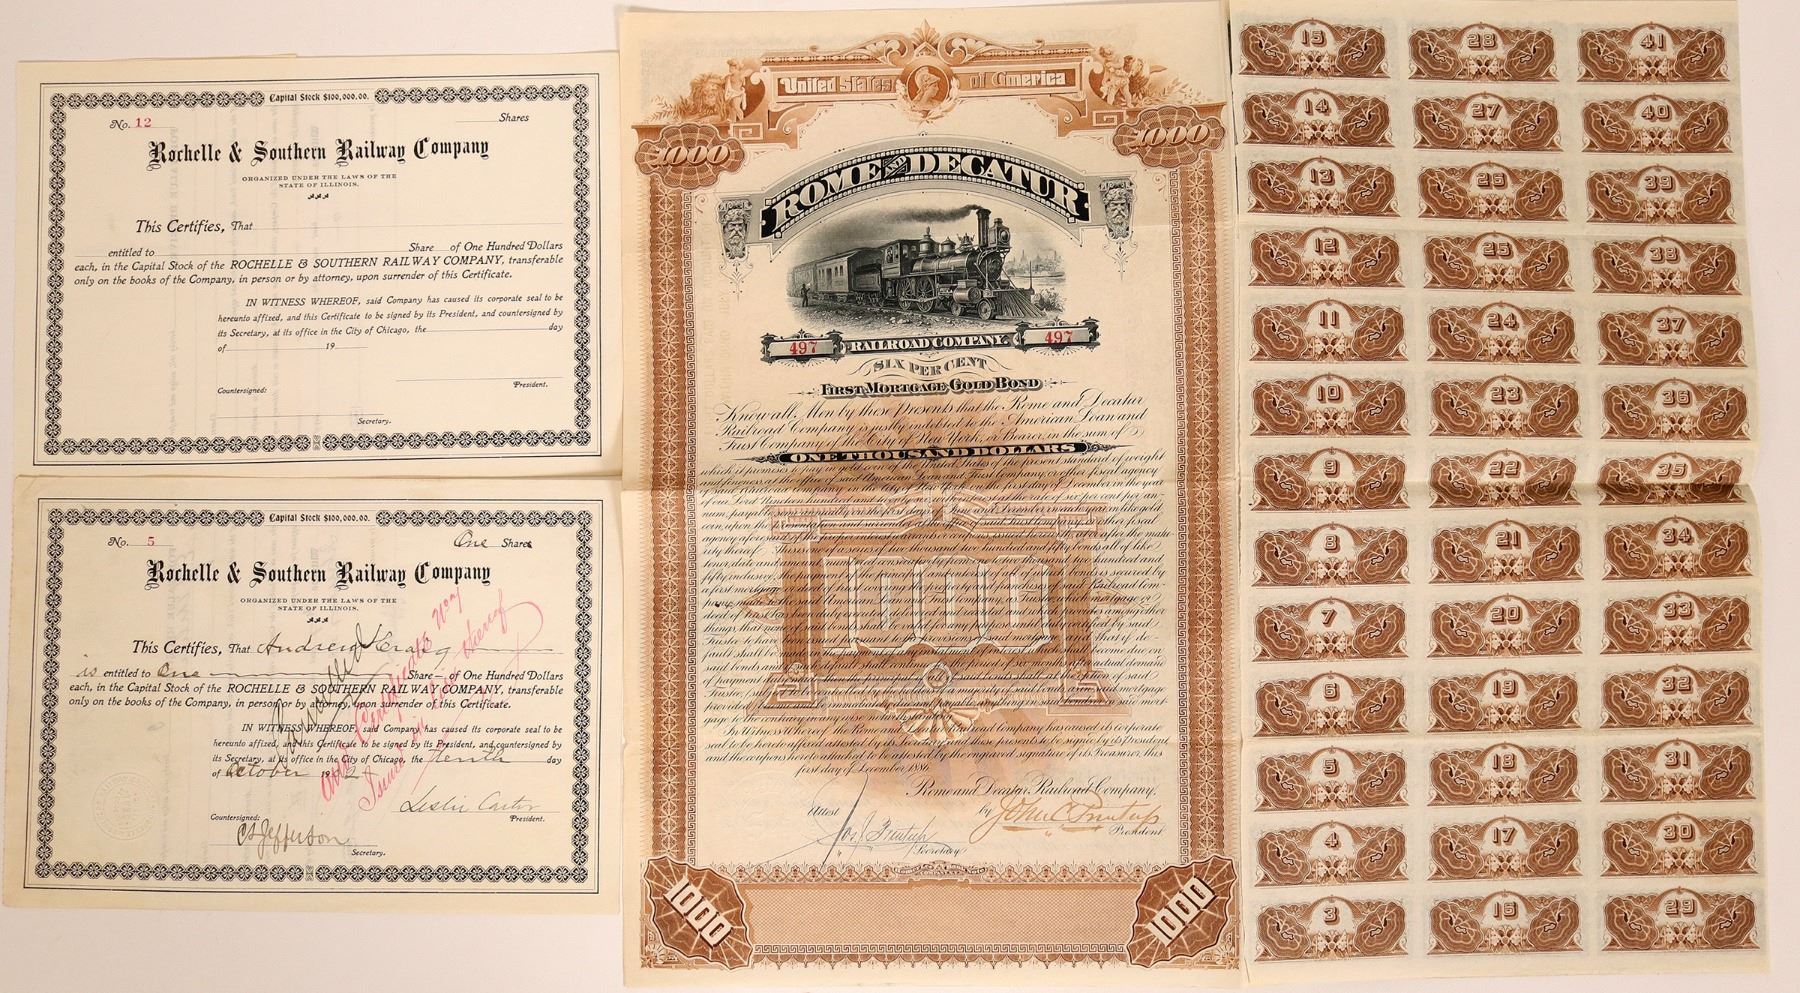 Capital Stock $100,000.00.
No. 12
Shares
Rochelle & Southern Railway Company
ORGANIZED UNDER THE LAWS OF THE
STATE OF ILLINOIS.
This Certifies, That
entitled to Share of One Hundred Dollars
each, in the Capital Stock of the ROCHELLE & SOUTHERN RAILWAY COMPANY, transferable
only on the books of the Company, in person or by attorney, upon surrender of this Certificate.
IN WITNESS WHEREOF, said Company has caused its corporate seal to be
hereunto affixed, and this Certificate to be signed by its President, and countersigned by
its Secretary, at its office in the City of Chicago, the day
of 19
President.
Countersigned:
Secretary.
Capital Stock $100,000.00.
No. 5
One Shares
Rochelle & Southern Railway Company
ORGANIZED UNDER THE LAWS OF THE
STATE OF ILLINOIS.
This Certifies, That Andrew Craig
is entitled to One Share of One Hundred Dollars
each, in the Capital Stock of the ROCHELLE & SOUTHERN RAILWAY COMPANY, transferable
only on the books of the Company, in person or by attorney, upon surrender of this Certificate.
IN WITNESS WHEREOF, said Company has caused its corporate seal to be
hereunto affixed, and this Certificate to be signed by its President, and countersigned by
its Secretary, at its office in the City of Chicago, the Tenth day
of October 19
Cancelled
Certificate No 7
Issued in lieu hereof
Leslie Carter
President.
Countersigned:
CS Jefferson
Secretary.
United States of America
1000
1000
ROME AND DECATUR
497 RAILROAD COMPANY 497
SIX PER CENT
FIRST MORTGAGE GOLD BOND
Know all Men by these Presents that the Rome and Decatur
Railroad Company is justly indebted to the American Loan and
Trust Company of the City of New York, or Bearer, in the sum of
ONE THOUSAND DOLLARS
which it promises to pay in gold coin of the United States of the present standard of weight
and fineness at the office of said American Loan and Trust Company, or other fiscal agency
of said Railroad Company in the City of New York on the first day of December in the year
of our Lord Nineteen hundred and twenty six, with interest at the rate of six per cent per an-
num, payable semi annually on the first days of June and December in each year, in like gold
coin, upon the presentation and surrender at the office of said Trust Company or other fiscal
agency aforesaid of the proper interest warrants or coupons
In Witness Whereof the Rome and Decatur Railroad Company has caused its corporate
seal to be hereto affixed attested by its Secretary and these presents to be signed by its President
and the coupons hereto attached to be attested by the engraved signature of its Treasurer, this
first day of December 1886.
Rome and Decatur Railroad Company,
Attest
by John C Printup
President
Jos. J. Printup
Secretary
1000
1000
1000
15 28 41
14 27 40
13 26 39
12 25 38
11 24 37
10 23 36
9 22 35
8 21 34
7 20 33
6 19 32
5 18 31
4 17 30
3 16 29